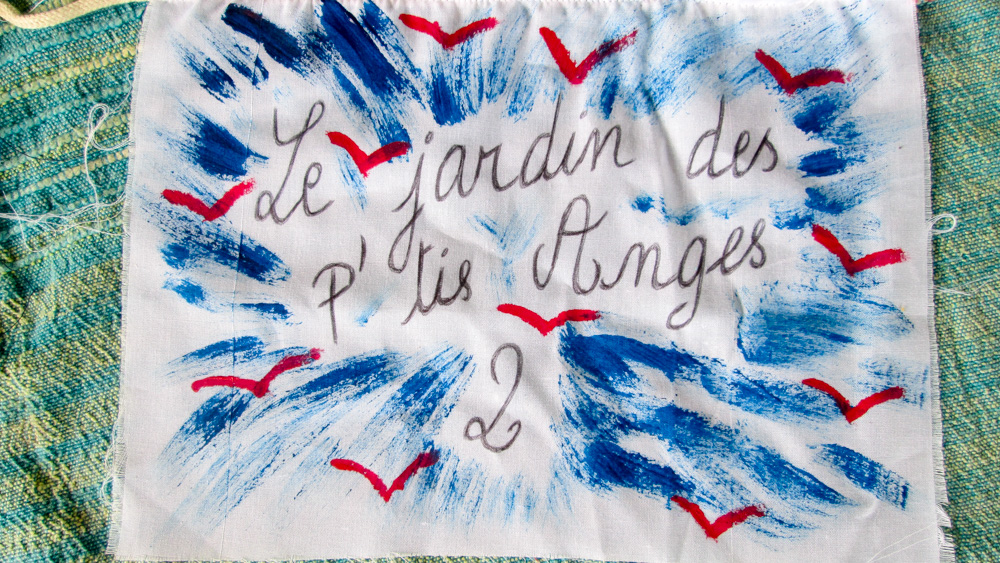 Le jardin des
p'tis Anges
2